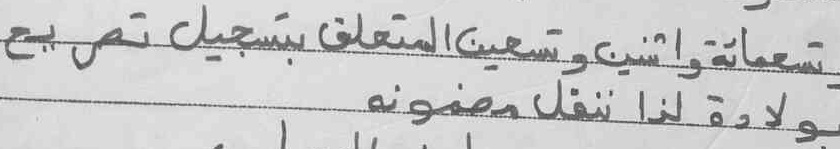 تسعمائة واثنين وتسعين المتعلق بتسجيل تصريح
بولادة لذا ننقل مضمونه